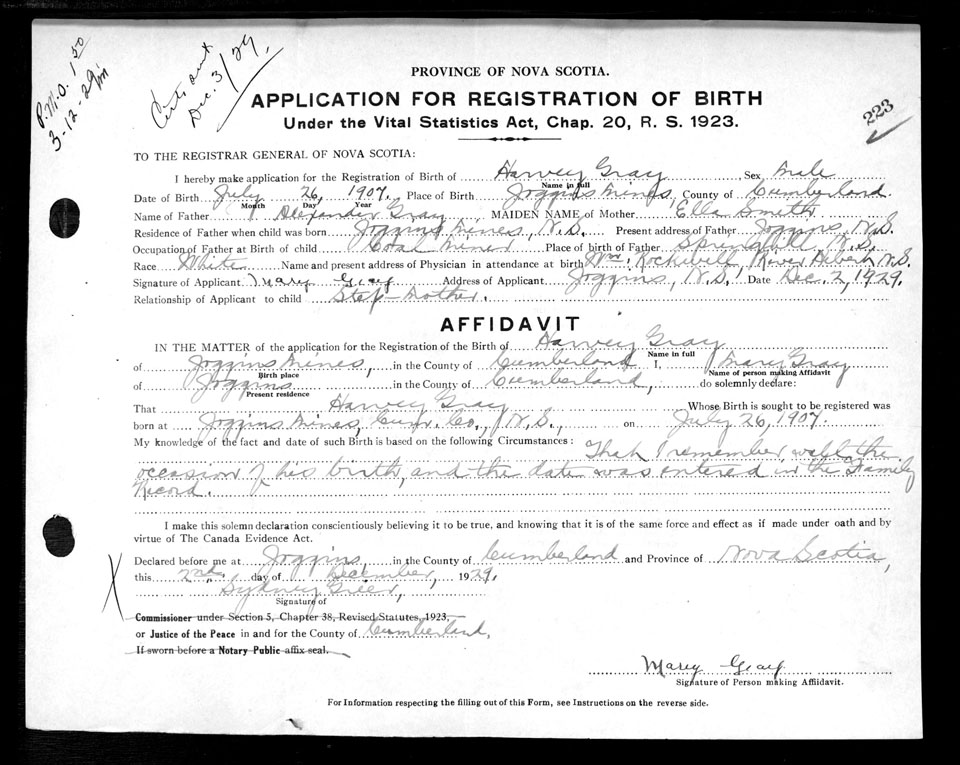 P.M.O. 1.50
3-12-29
Cert. out
Dec. 3/29.
223
PROVINCE OF NOVA SCOTIA.
APPLICATION FOR REGISTRATION OF BIRTH
Under the Vital Statistics Act, Chap. 20, R. S. 1923.
TO THE REGISTRAR GENERAL OF NOVA SCOTIA:
I hereby make application for the Registration of Birth of Harvey Gray Sex Male
Name in full
Date of Birth July 26, 1907. Place of Birth Joggins Mines, County of Cumberland
Month Day Year
Name of Father Alexander Gray, MAIDEN NAME of Mother Ella Smith
Residence of Father when child was born Joggins Mines, N.S. Present address of Father Joggins, N.S.
Occupation of Father at Birth of child Coal Miner Place of birth of Father Springhill N.S.
Race White Name and present address of Physician in attendance at birth Wm. Rockwell River Hebert N.S.
Signature of Applicant Mary Gray Address of Applicant Joggins, N.S. Date Dec. 2, 1929.
Relationship of Applicant to child Step-Mother.
AFFIDAVIT
IN THE MATTER of the application for the Registration of the Birth of Harvey Gray
Name in full
of Joggins Mines, in the County of Cumberland I, Mary Gray
Birth place Name of person making Affidavit
of Joggins in the County of Cumberland, do solemnly declare:
Present residence
That Harvey Gray Whose Birth is sought to be registered was
born at Joggins Mines, Cum. Co., N.S., on July 26, 1907.
My knowledge of the fact and date of such Birth is based on the following Circumstances: That I remember well the
occasion of his birth, and the date was entered in the Family
Record.
I make this solemn declaration conscientiously believing it to be true, and knowing that it is of the same force and effect as if made under oath and by
virtue of The Canada Evidence Act.
Declared before me at Joggins, in the County of Cumberland and Province of Nova Scotia,
this 2nd day of December, 1929.
Sydney Greer,
Signature of
Commissioner under Section 5, Chapter 38, Revised Statutes, 1923,
or Justice of the Peace in and for the County of Cumberland.
If sworn before a Notary Public affix seal.
Mary Gray
Signature of Person making Affidavit.
For Information respecting the filling out of this Form, see Instructions on the reverse side.